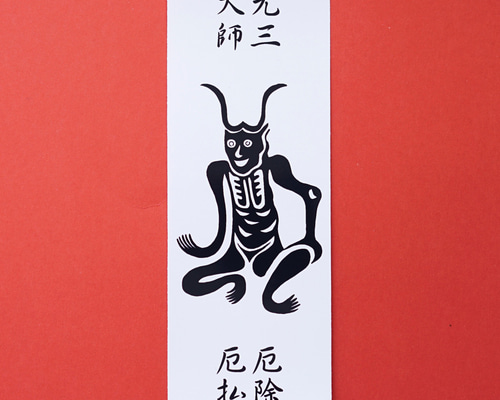 元三
大師
厄除
厄払